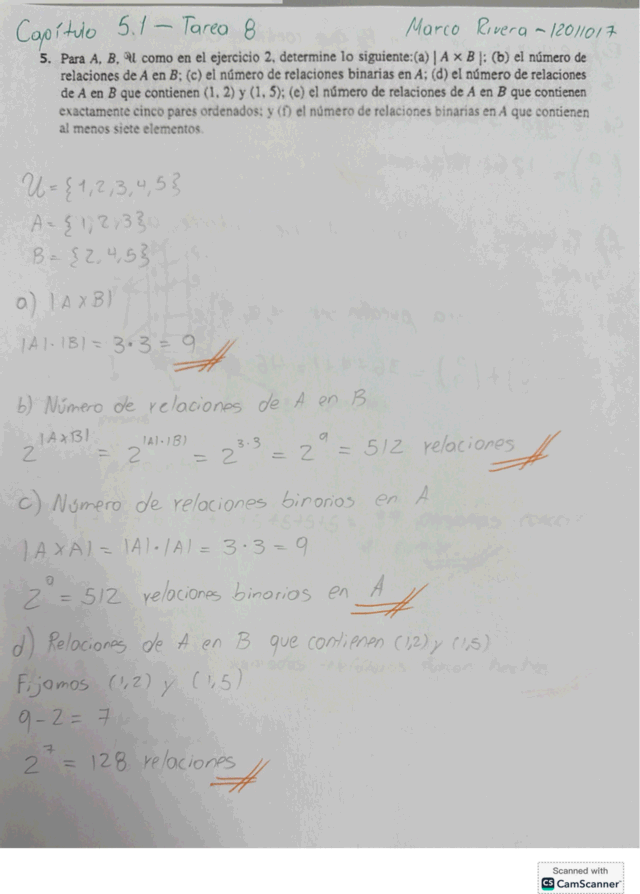 Capítulo 5.1 — Tarea 8 Marco Rivera - 12011017
5. Para A, B, 𝒰 como en el ejercicio 2, determine lo siguiente:(a) | A × B |; (b) el número de
relaciones de A en B; (c) el número de relaciones binarias en A; (d) el número de relaciones
de A en B que contienen (1, 2) y (1, 5); (e) el número de relaciones de A en B que contienen
exactamente cinco pares ordenados; y (f) el número de relaciones binarias en A que contienen
al menos siete elementos.
𝒰 = {1,2,3,4,5}
A = {1,2,3}
B = {2,4,5}
a) |A×B|
|A|·|B| = 3·3 = 9
b) Número de relaciones de A en B
2^|A×B| = 2^|A|·|B| = 2^3·3 = 2^9 = 512 relaciones
c) Número de relaciones binarias en A
|A×A| = |A|·|A| = 3·3 = 9
2^9 = 512 relaciones binarias en A
d) Relaciones de A en B que contienen (1,2) y (1,5)
Fijamos (1,2) y (1,5)
9-2 = 7
2^7 = 128 relaciones
Scanned with
CS CamScanner